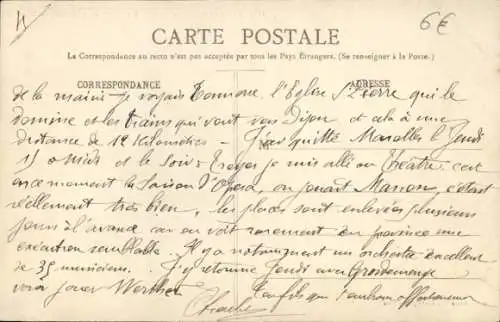 4
6€
CARTE POSTALE
La Correspondance au recto n'est pas acceptée par tous les Pays Étrangers. (Se renseigner à la Poste.)
CORRESPONDANCE
ADRESSE
de la mairie je voyais Tonnerre, l'Eglise St Pierre qui le
domine et les trains qui vont vers Dijon et cela à une
distance de 12 kilomètres — J'ai quitté Marolles le Jeudi
15 à midi et le soir à Troyes je suis allé au théâtre c'est
en ce moment la saison d'Opéra, on jouait Manon, c'était
réellement très bien, les places sont enlevées plusieurs
jours à l'avance car on voit rarement en province une
exécution semblable. Il y a notamment un orchestre excellent
de 35 musiciens. J'y retourne Jeudi avec
voir jouer Werther. Ton fils qui t'embrasse affectueusement